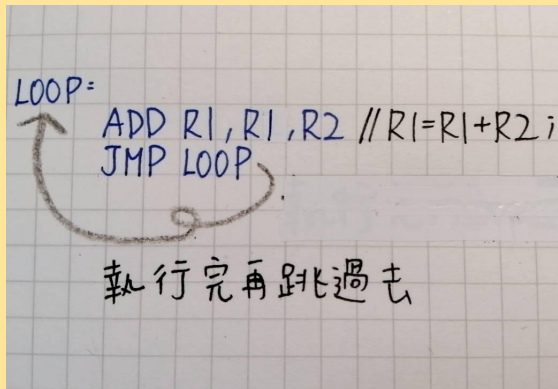 LOOP:
ADD R1,R1,R2 //R1=R1+R2;
JMP LOOP
執行完再跳過去